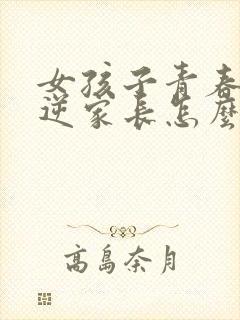 女孩子青春
逆家長怎麼
高島奈月